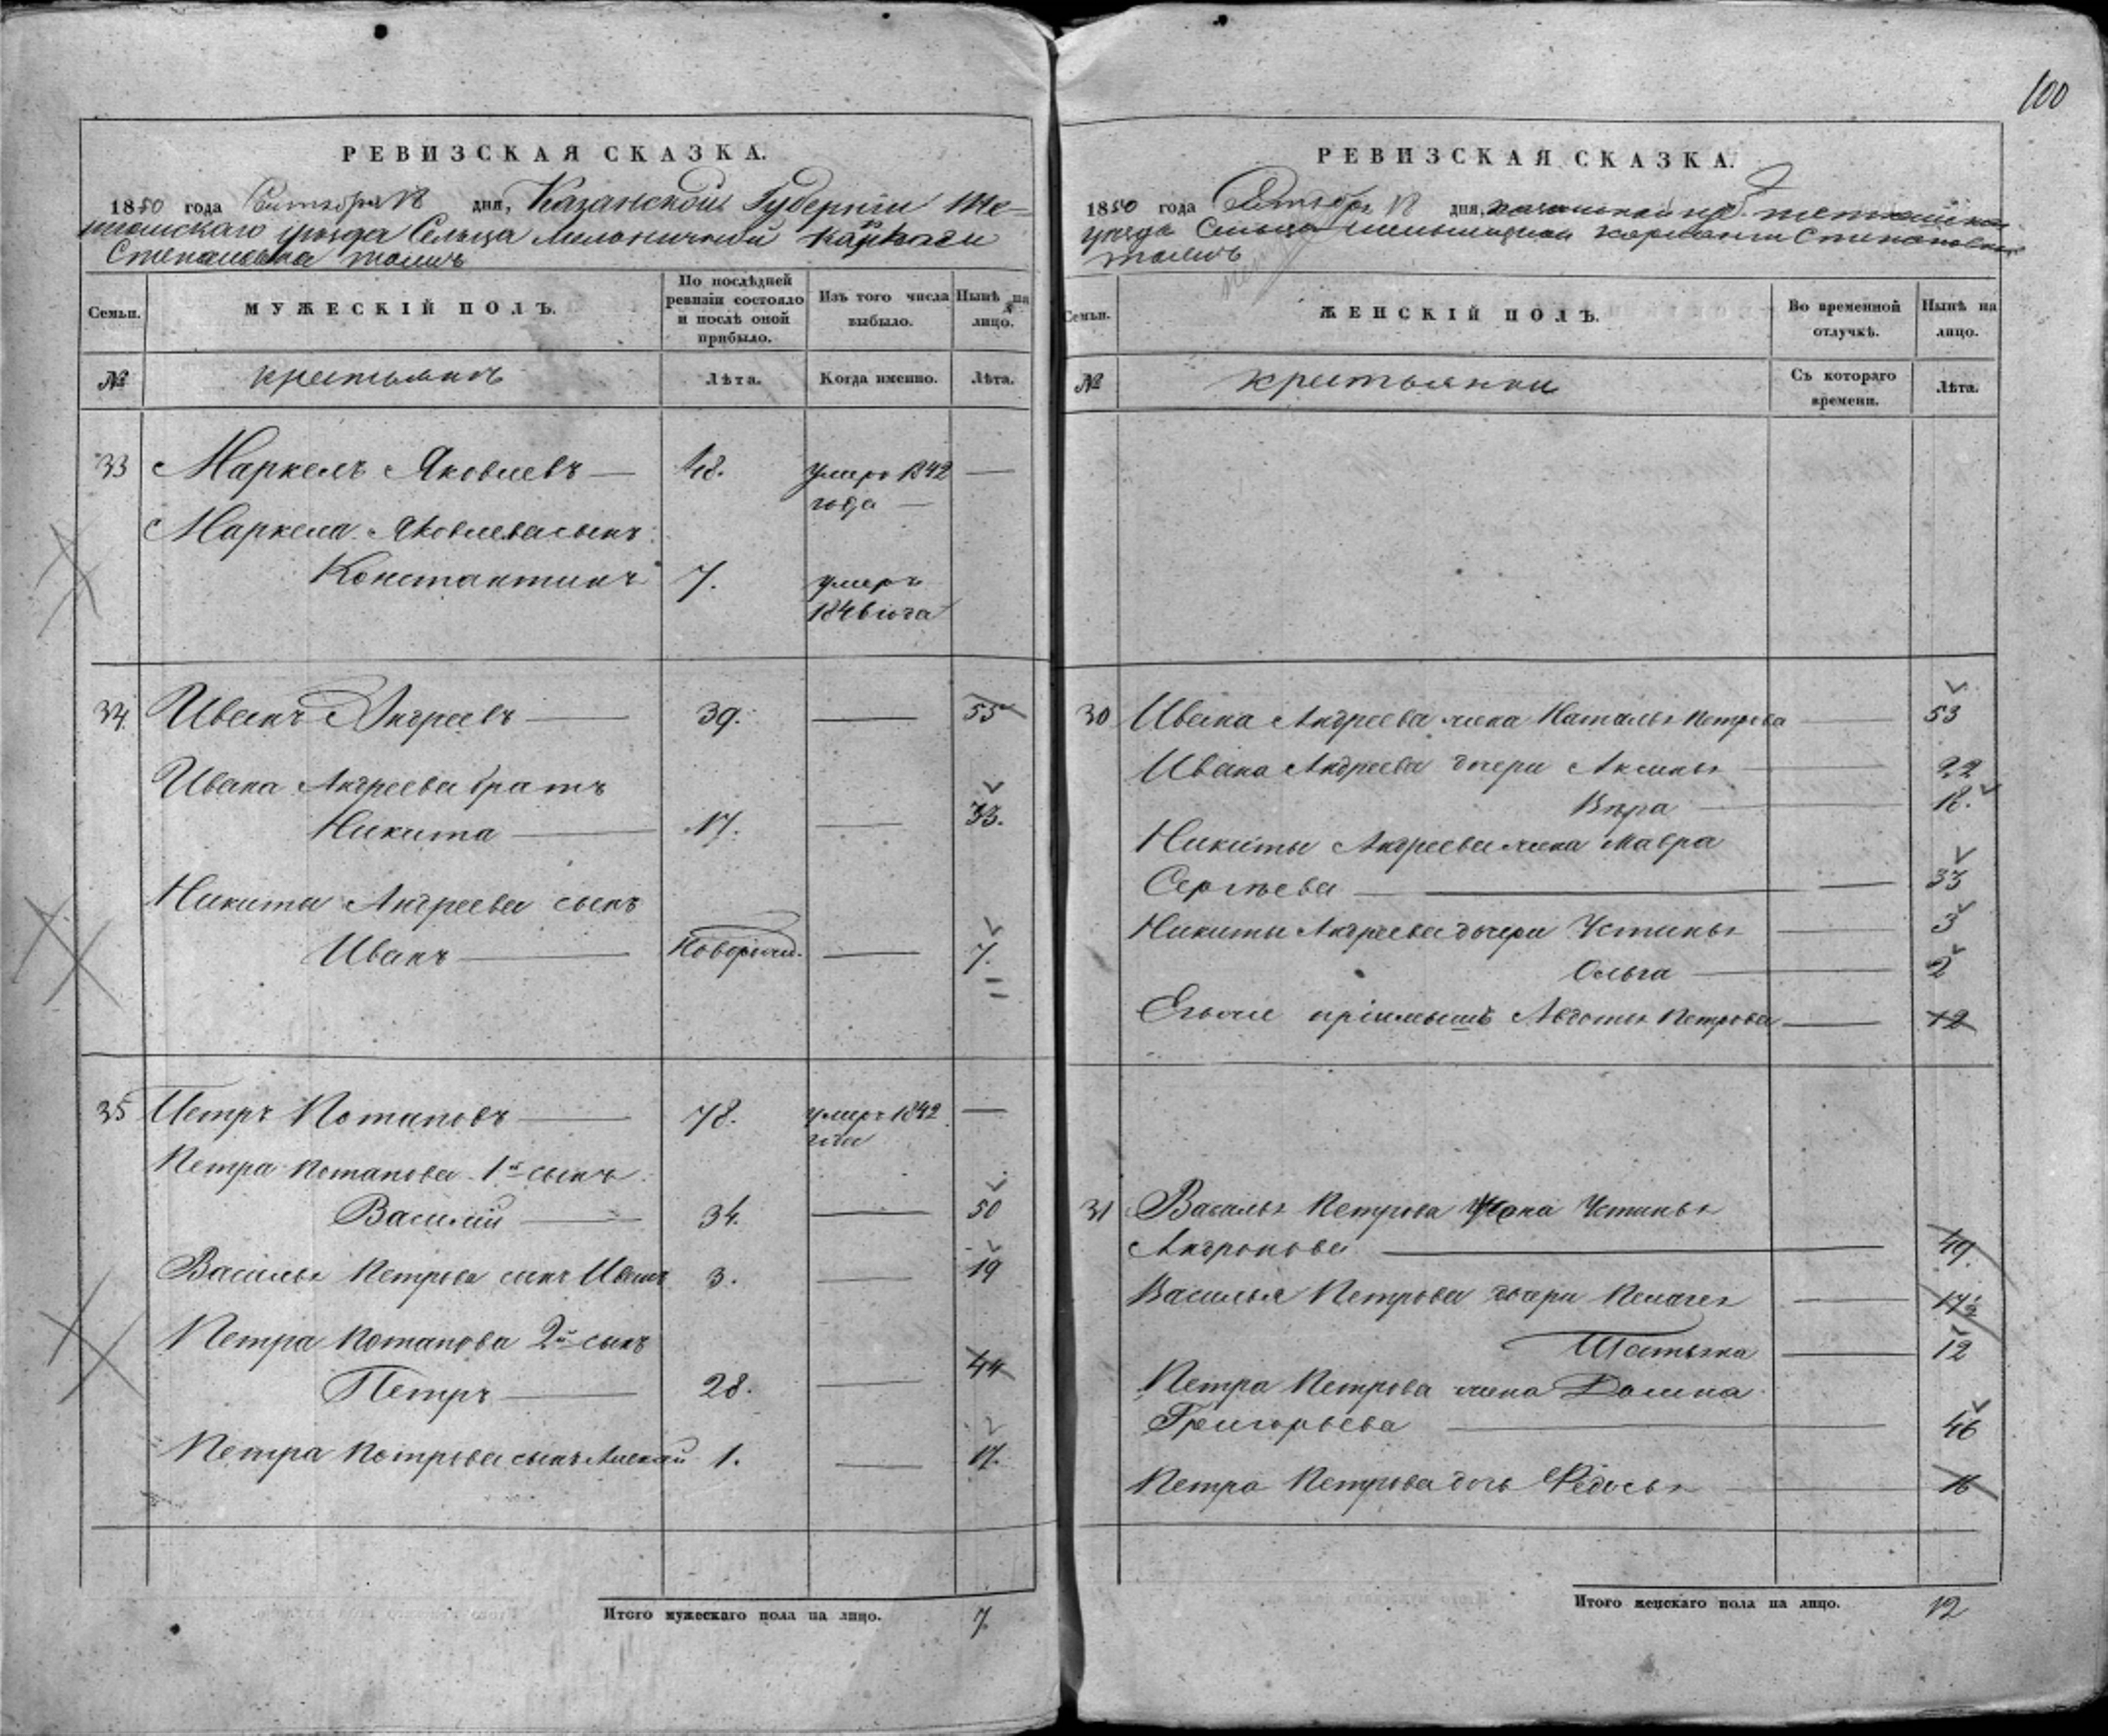 100
РЕВИЗСКАЯ СКАЗКА.
1850 года Октября 18 дня, Казанской Губернии Те=
тюшскаго уезда Сельца Кармалы
Степановка тожъ
Семьи. МУЖЕСКІЙ ПОЛЪ. По послѣдней ревизіи состояло и послѣ оной прибыло. Изъ того числа выбыло. Нынѣ на лицо.
№ крестьянъ Лѣта. Когда именно. Лѣта.
33 Маркелъ Яковлевъ — 48. умеръ 1842 —
года —
Маркела Яковлева сынъ
Константинъ 7. умеръ
1846 года
34 Иванъ Андреевъ — 39. — 55
Ивана Андреева братъ
Никита — 17. — 33.
Никиты Андреева сынъ
Иванъ — Новорожд. — 7.
35 Петръ Потаповъ — 78. умеръ 1842 —
года
Петра Потапова 1й сынъ
Василій — 34. — 50
Василья Петрова сынъ Иванъ 3. — 19
Петра Потапова 2й сынъ
Петръ — 28. — 44
Петра Петрова сынъ Алексей 1. — 17.
Итого мужескаго пола на лицо. 7.
РЕВИЗСКАЯ СКАЗКА.
1850 года Октября 18 дня, Казанской губ. Тетюшскаго
уезда Сельца Кармалы Степановка
тожъ
Семьи. ЖЕНСКІЙ ПОЛЪ. Во временной отлучкѣ. Нынѣ на лицо.
№ крестьянки Съ котораго времени. Лѣта.
30 Ивана Андреева жена Наталья Петрова — 53
Ивана Андреева дочери Аксинья — 22
Вѣра — 18.
Никиты Андреева жена Мавра
Сергѣева — 33
Никиты Андреева дочери Устинья — 3
Ольга — 2
пріимышъ Авдотья Петрова — 12
31 Василья Петрова жена Устинья
Андронова — 49.
Василья Петрова дочери Пелагея — 17½
Татьяна — 12
Петра Петрова жена Домна
Григорьева — 46
Петра Петрова дочь Федосья — 16
Итого женскаго пола на лицо. 12